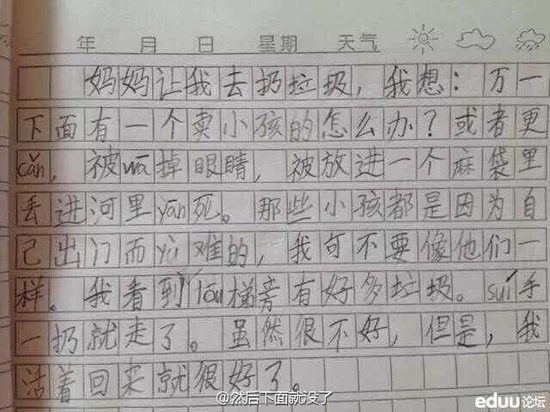 年 月 日 星期 天气
妈妈让我去扔垃圾，我想：万一
下面有一个卖小孩的怎么办？或者更
cǎn，被wā掉眼睛，被放进一个麻袋里
丢进河里yān死。那些小孩都是因为自
己出门而yù难的，我可不要像他们一
样。我看到lóu梯旁有好多垃圾。suí手
一扔就走了。虽然很不好，但是，我
活着回来就很好了。
@然后下面就没了
eduu论坛